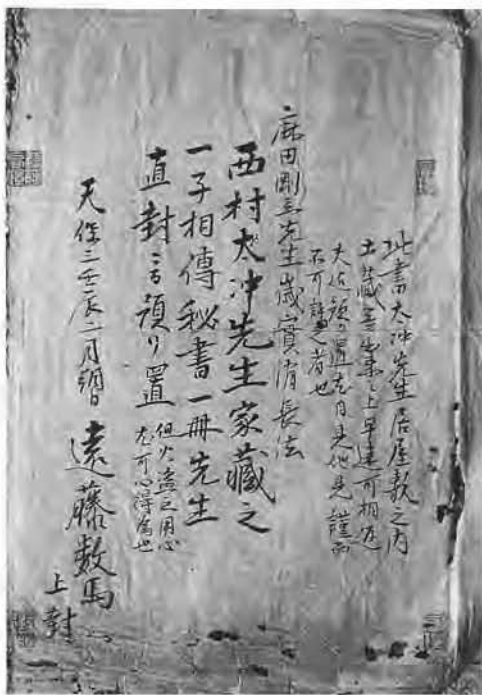 此書太冲先生居屋敷之内
土藏等出来之上早速可相返
大法預り置尤自見他見謹而
不可許之者也
麻田剛立先生歳實消長法
西村太冲先生家藏之
一子相傳秘書一冊先生
直封言預り置
但火盗之用心
尤可心得為也
天保三壬辰二月
遠藤数馬
上封